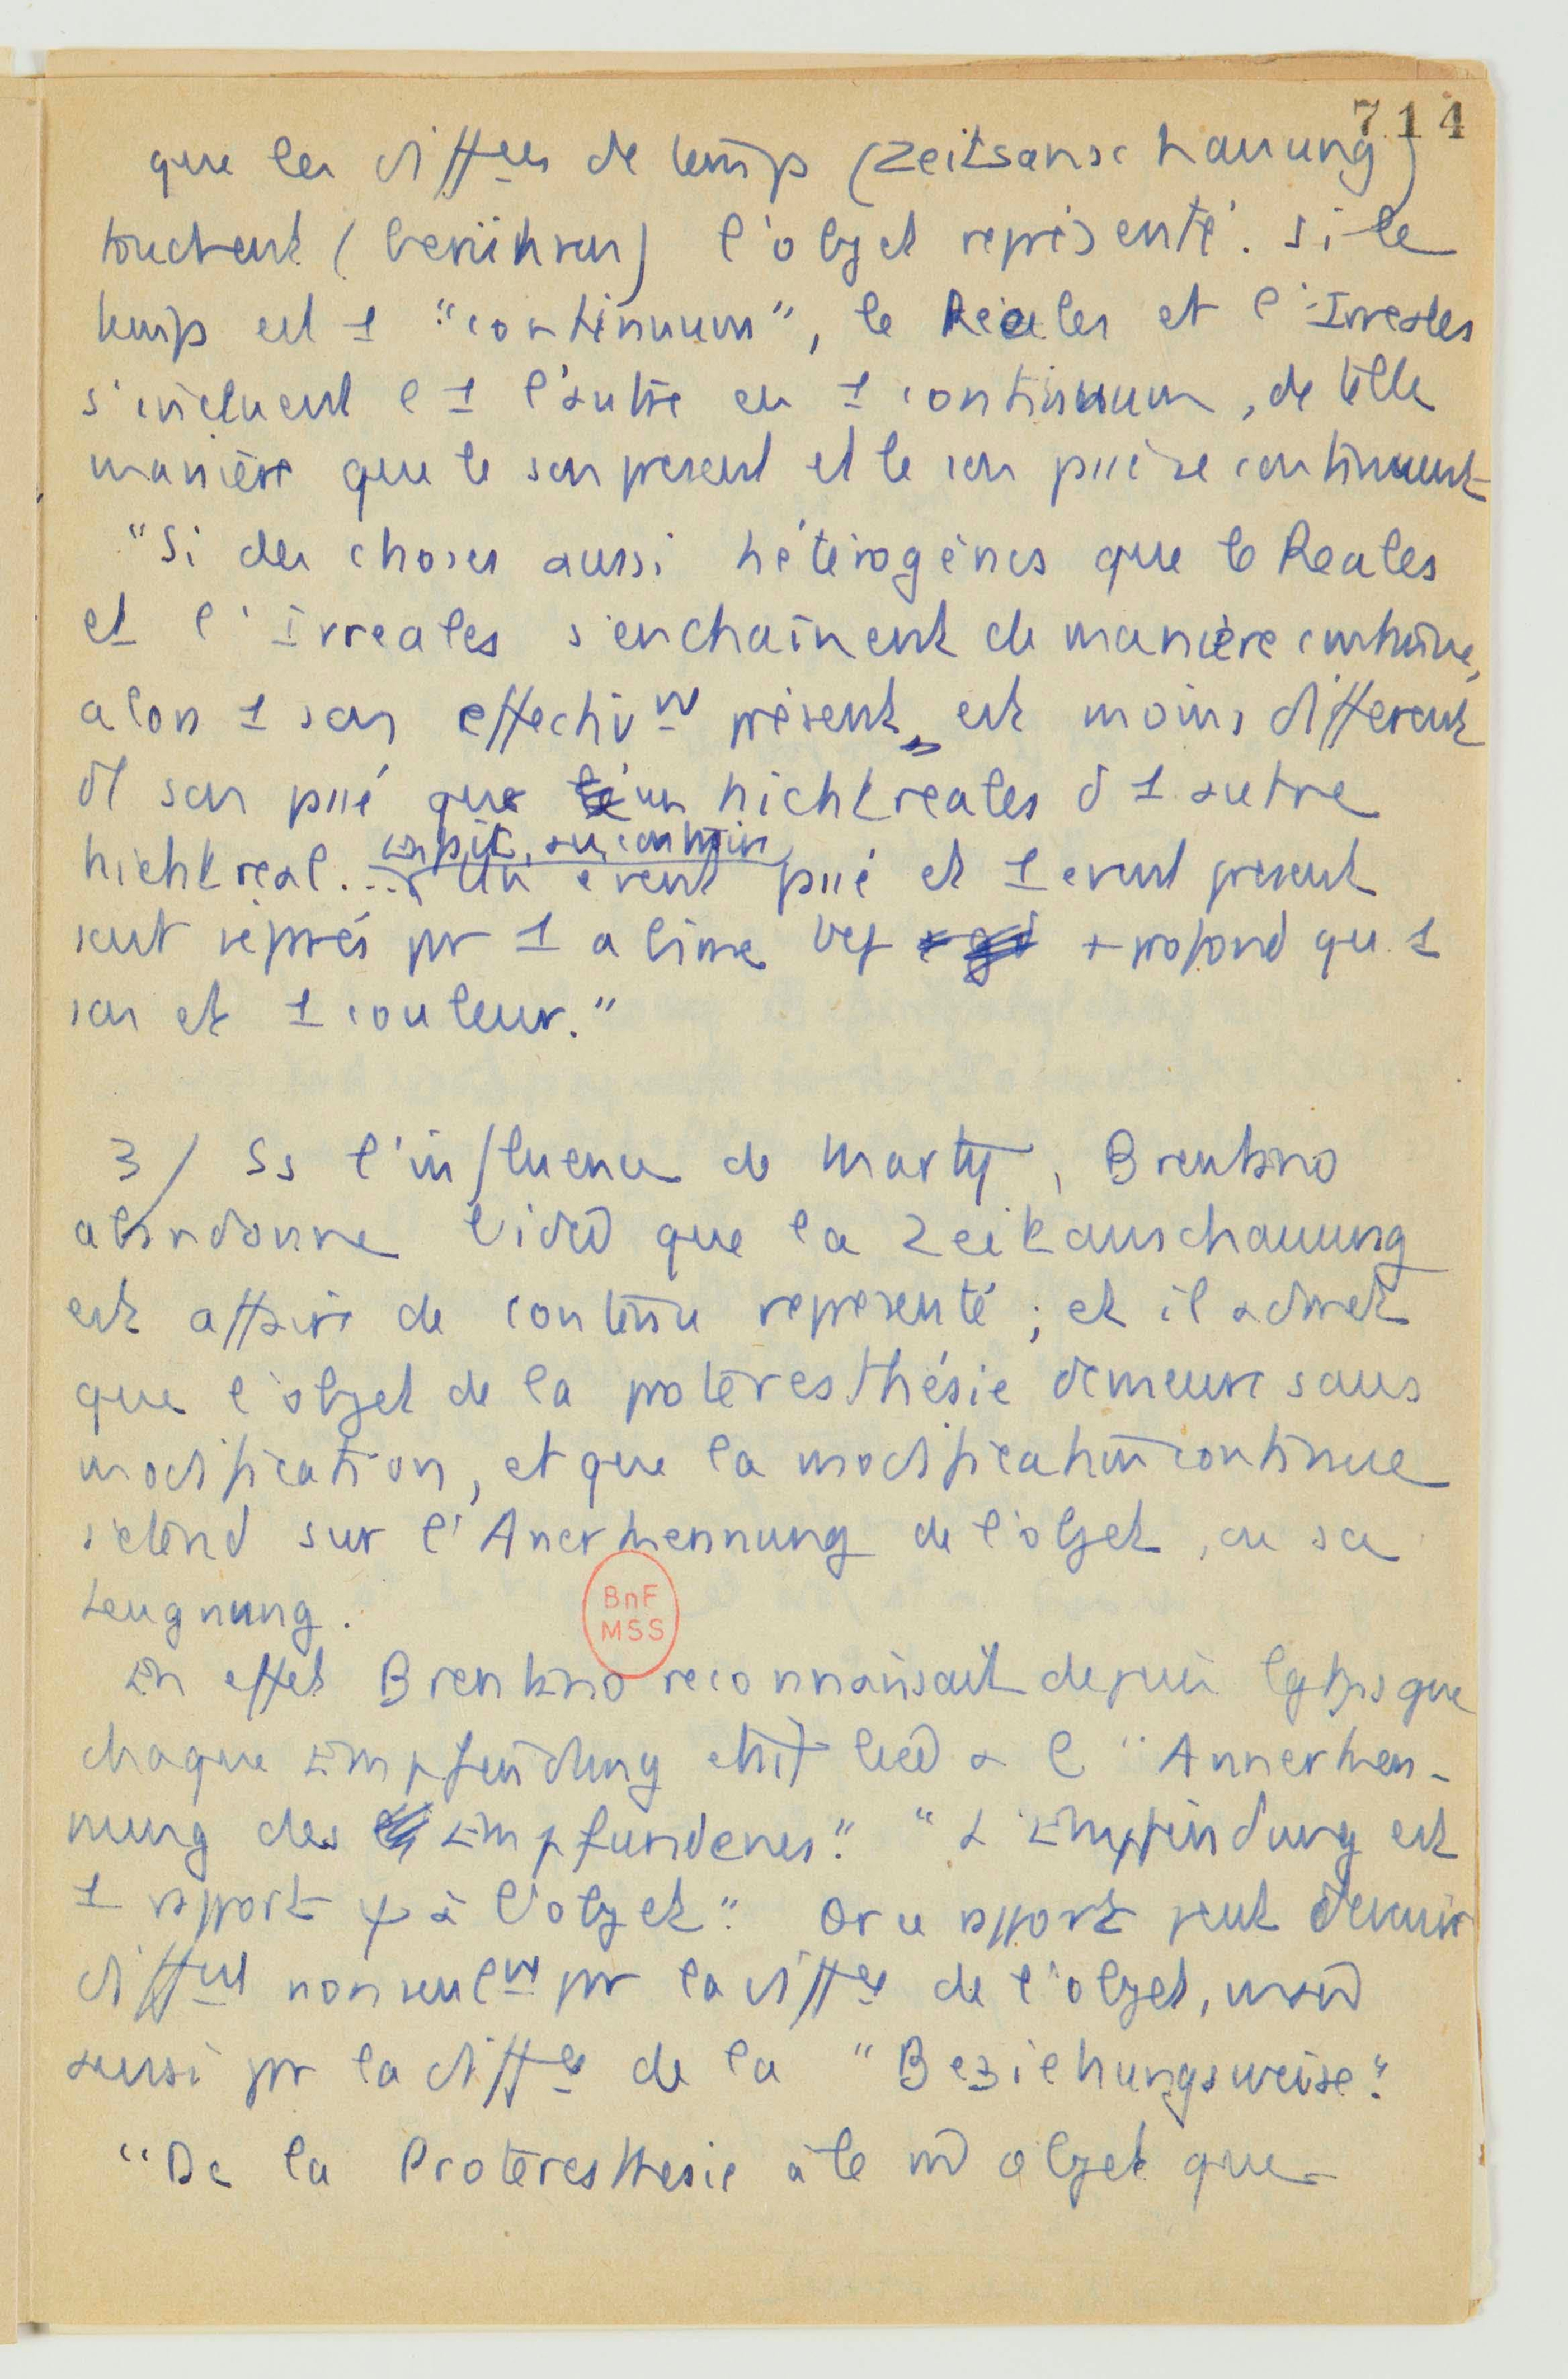 714
que les diffces de temps (Zeitsanschauung)
touchent (berühren) l'objet représenté. Si le
temps est 1 "continuum", le Reales et l'Irreales
s'incluent l'1 l'autre en 1 continuum, de telle
manière que le son present et le son pssé se continuent
"Si des choses aussi hétérogènes que le Reales
et l'Irreales s'enchaînent de manière continue,
alors 1 son effectivt présent est moins différent
dl son pssé que un nichtreales d 1 autre
nichtreal. ...
En fait, au contraire
Un event pssé et 1 event present
sont séprés pr 1 abime + profond qu 1
son et 1 couleur."
3/ Ss l'influence de Marty, Brentano
abandonne l'idée que la Zeitanschauung
est affaire de contenu representé ; et il admet
que l'objet de la proteresthésie demeure sans
modification, et que la modification continue
s'etend sur l'Anerkennung de l'objet, ou sa
Leugnung.
BnF
MSS
En effet Brentano reconnaissait depuis lgtps que
chaque Empfindung etait liée a l "Annerken-
nung des Empfundenes". "L'Empfindung est
1 rapport ψ à l'objet". Or ce rapport peut devenir
diffent non seulmt pr la diffce de l'objet, mais
aussi pr la diffce de la "Beziehungsweise".
"De la Proteresthesie a le m objet que